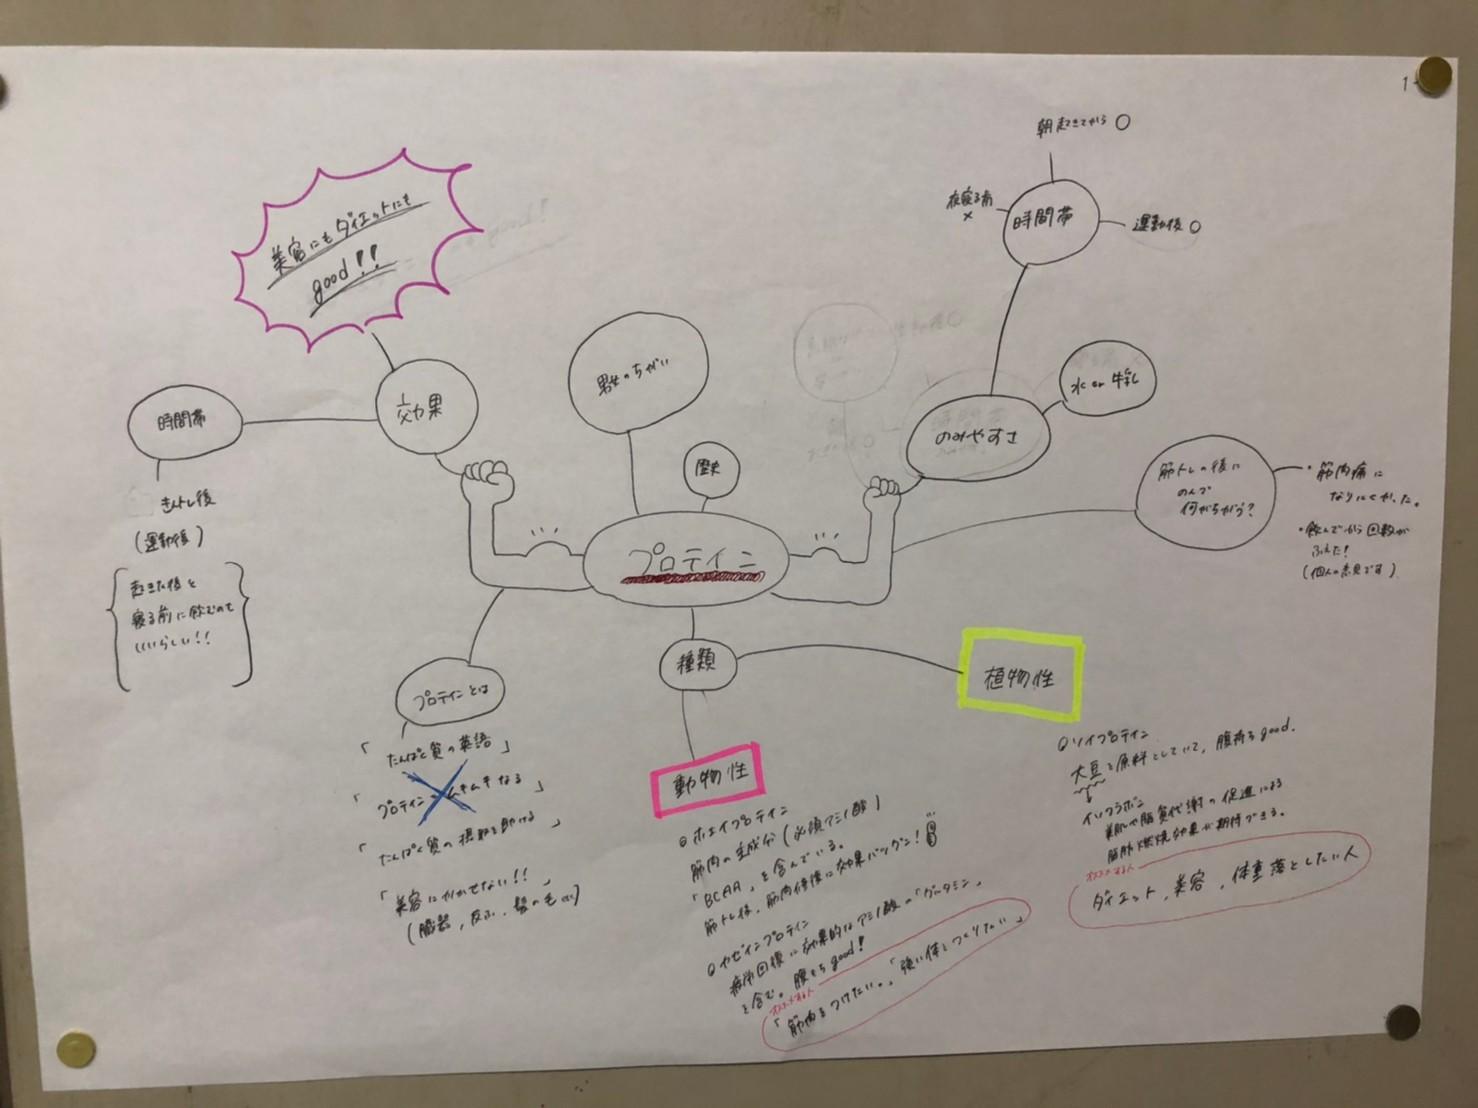 1
朝起きてから ○
夜寝る前
×
時間帯
運動後 ○
美容にもダイエットにも
good!!
効果
時間帯
きんトレ後
(運動後)
起きた後と
寝る前に飲むのも
いいらしい!!
男女のちがい
歴史
のみやすさ
水 or 牛乳
筋トレの後に
のんで
何がちがう?
・筋肉痛に
なりにくかった。
・飲んでから回数が
ふえた!
(個人の意見です)
プロテイン
プロテインとは
「たんぱく質の英語」
「プロテイン=ムキムキなる」
「たんぱく質の摂取を助ける」
「美容にかかせない!!」
(臓器、皮ふ、髪の毛 etc)
種類
動物性
○ホエイプロテイン
筋肉の生成分(必須アミノ酸)
「BCAA」を含んでいる。
筋トレ後、筋肉修復に効果バツグン!
○カゼインプロテイン
疲労回復に効果的なアミノ酸の「グルタミン」
を含む。腹もちgood!
オススメする人
「筋肉をつけたい。」「強い体をつくりたい」
植物性
○ソイプロテイン
大豆を原料としていて、腹持ちgood.
イソフラボン
美肌や脂質代謝の促進による
脂肪燃焼効果が期待できる。
オススメする人
ダイエット、美容、体重落としたい人